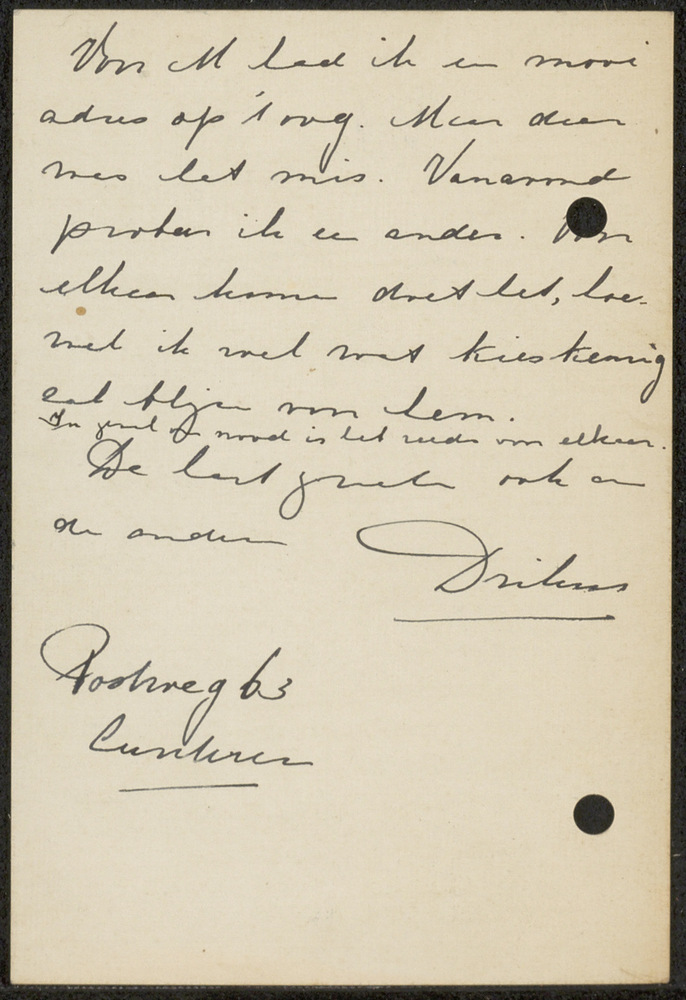 Voor M had ik een mooi
adres op 't oog. Maar daar
was het mis. Vanavond
probeer ik een ander. Voor
elkaar komen doet het, hoe-
wel ik wel wat kieskeurig
zal blijven voor hem.
In geval van nood is het reeds voor elkaar.
De hart groeten ook aan
de anderen
Drikus
Postweg 63
Lunteren